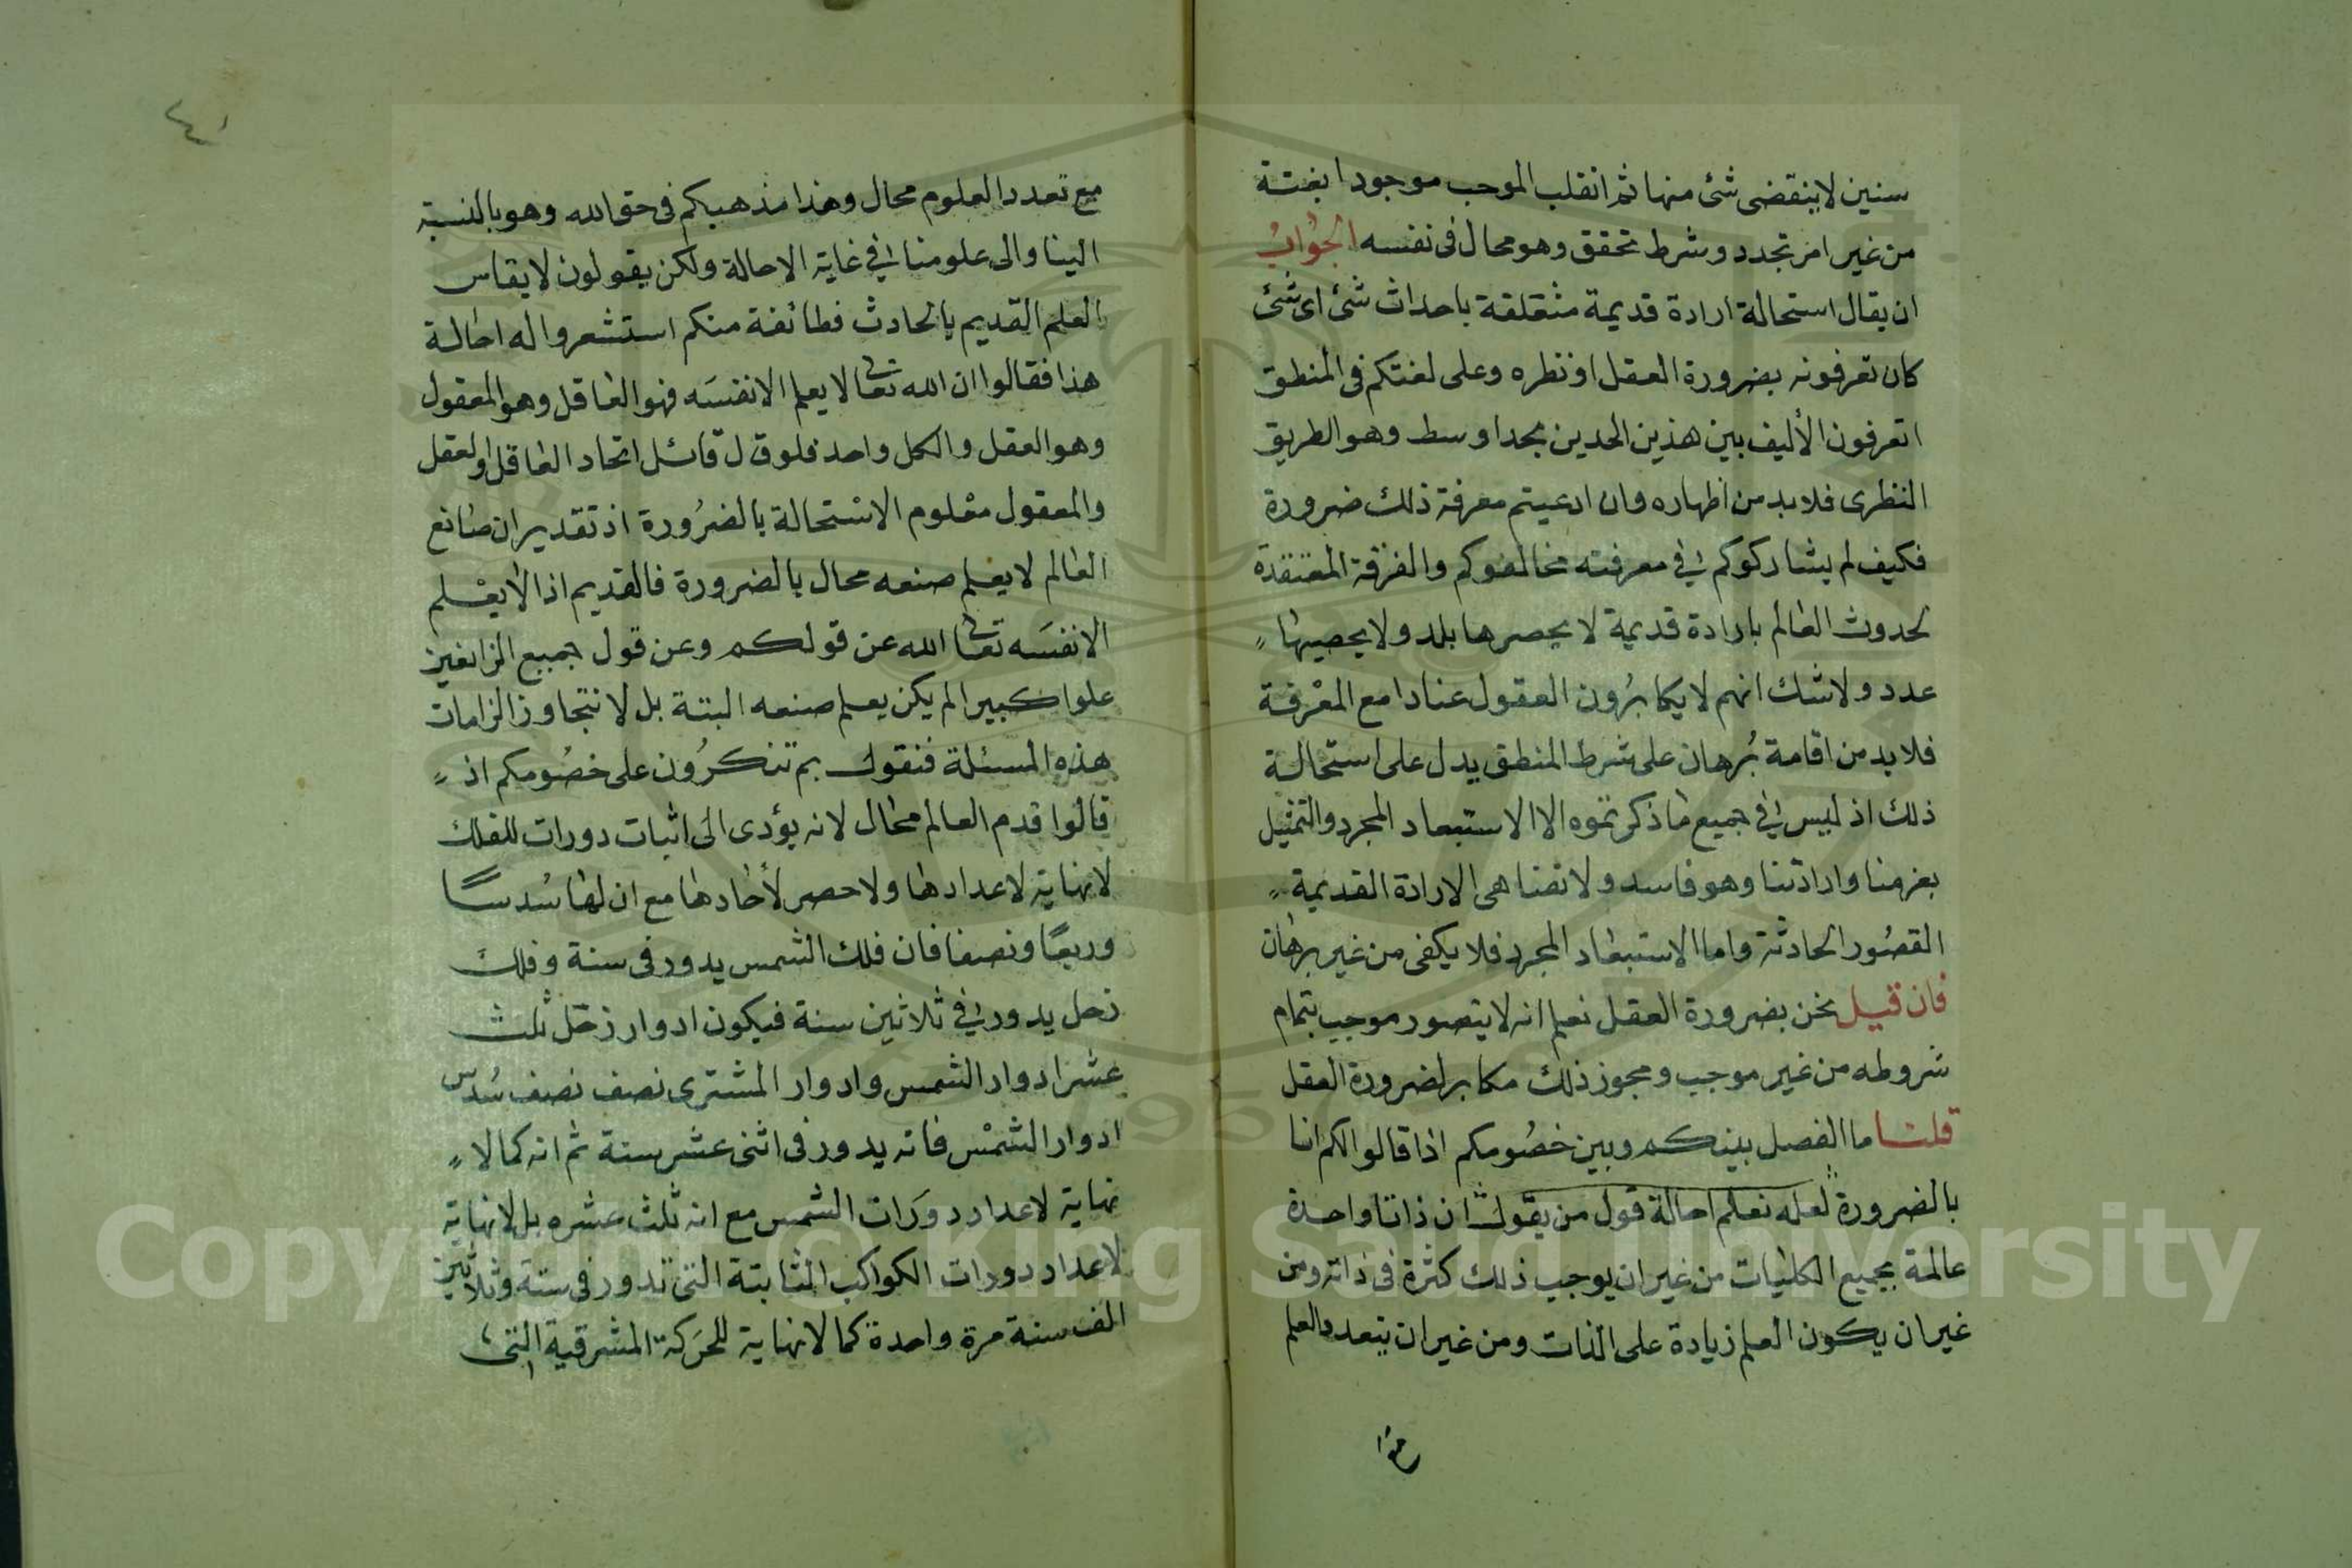 سنين لا ينقضى شئ منها ثم انقلب الموجب موجودا بغتة
من غير امر تجدد وشرط تحقق وهو محال فى نفسه الجواب
ان يقال استحالة ارادة قديمة متعلقة باحداث شئ اى شئ
كان تعرفونه بضرورة العقل او نظره وعلى لغتكم فى المنطق
اتعرفون الأليف بين هذين الحدين بحد اوسط وهو الطريق
النظرى فلا بد من اظهاره وان ادعيتم معرفة ذلك ضرورة
فكيف لم يشاركوكم فى معرفته مخالفوكم والفرقة المعتقدة
لحدوث العالم بارادة قديمة لا يحصرها بلد ولا يحصيها
عدد ولا شك انهم لا يكابرون العقول عنادا مع المعرفة
فلا بد من اقامة برهان على شرط المنطق يدل على استحالة
ذلك اذ ليس فى جميع ما ذكرتموه الا الاستبعاد المجرد والتمثيل
بعزمنا وارادتنا وهو فاسد ولا تضاهى الارادة القديمة
القصور الحادثة واما الاستبعاد المجرد فلا يكفى من غير برهان
فان قيل نحن بضرورة العقل نعلم انه لا يتصور موجب بتمام
شروطه من غير موجب ومجوز ذلك مكابر لضرورة العقل
قلنا ما الفصل بينكم وبين خصومكم اذا قالوا لكم انا
بالضرورة لعله نعلم احالة قول من يقول ان ذاتا واحدة
عالمة بجميع الكليات من غير ان يوجب ذلك كثرة فى ذاته ومن
غير ان يكون العلم زيادة على الذات ومن غير ان يتعدد العلم
مع تعدد العلوم محال وهذا مذهبكم فى حق الله وهو بالنسبة
الينا والى علومنا فى غاية الاحالة ولكن يقولون لا يقاس
العلم القديم بالحادث فطائفة منكم استشعروا له احالة
هذا فقالوا ان الله تعالى لا يعلم الا نفسه فهو العاقل وهو المعقول
وهو العقل والكل واحد فلو قال قائل اتحاد العاقل والعقل
والمعقول معلوم الاستحالة بالضرورة اذ تقدير ان صانع
العالم لا يعلم صنعه محال بالضرورة فالقديم اذا لا يعلم
الا نفسه تعالى الله عن قولكم وعن قول جميع الزائغين
علوا كبيرا لم يكن يعلم صنعه البتة بل لا نتجاوز الزامات
هذه المسئلة فنقول بم تنكرون على خصومكم اذ
قالوا قدم العالم محال لانه يؤدى الى اثبات دورات للفلك
لا نهاية لاعدادها ولا حصر لأحادها مع ان لها سدسا
وربعا ونصفا فان فلك الشمس يدور فى سنة وفلك
زحل يدور فى ثلاثين سنة فيكون ادوار زحل ثلث
عشر ادوار الشمس وادوار المشترى نصف نصف سدس
ادوار الشمس فانه يدور فى اثنى عشر سنة ثم انه كما لا
نهاية لاعداد دورات الشمس مع انه ثلث عشره بل لا نهاية
لاعداد دورات الكواكب الثابتة التى تدور فى ستة وثلاثين
الف سنة مرة واحدة كما لا نهاية للحركة المشرقية التى
Copyright © King Saud University
1957